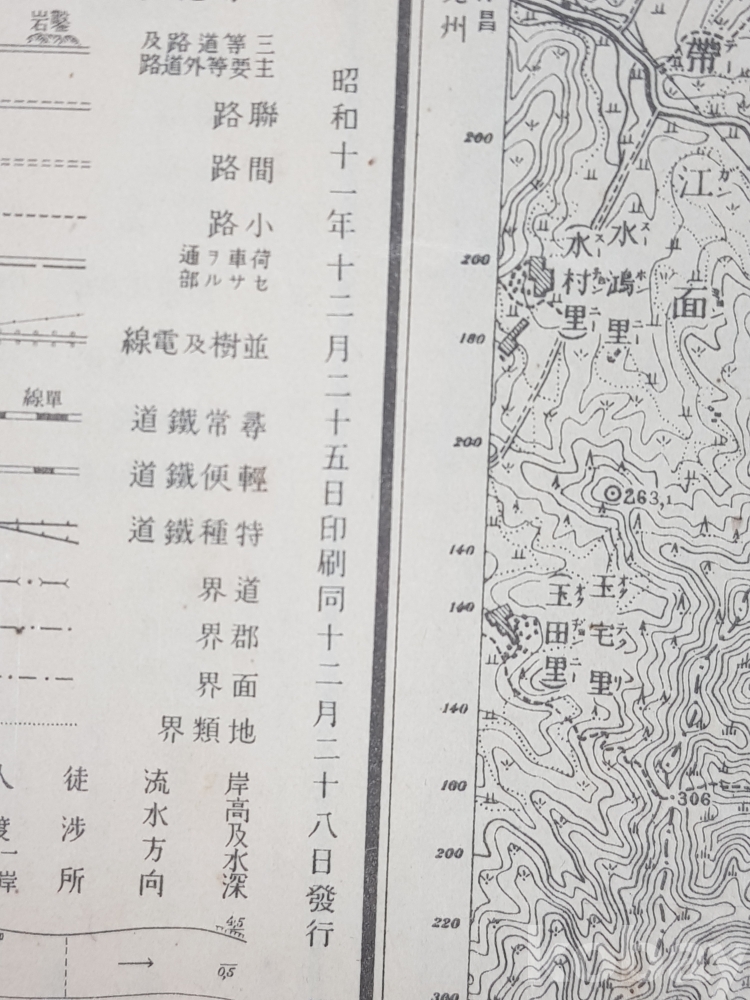 昭和十一年十二月二十五日印刷同十二月二十八日發行
三等道路及
主要等外道路
鑿岩
聯路
間路
小路
荷車ヲ通
セサル部
並樹及電線
尋常鐵道
單線
輕便鐵道
特種鐵道
道界
郡界
面界
地類界
岸高及水深
流水方向
徒涉所
4.5
0.5
昌
州
帶
江
面
カン
水鴻里
スーホンニー
水村里
スーチョンニー
玉宅里
オクテクリ
玉田里
オクヂョンニー
263,1
306
200
200
180
200
140
140
140
160
200
220
300